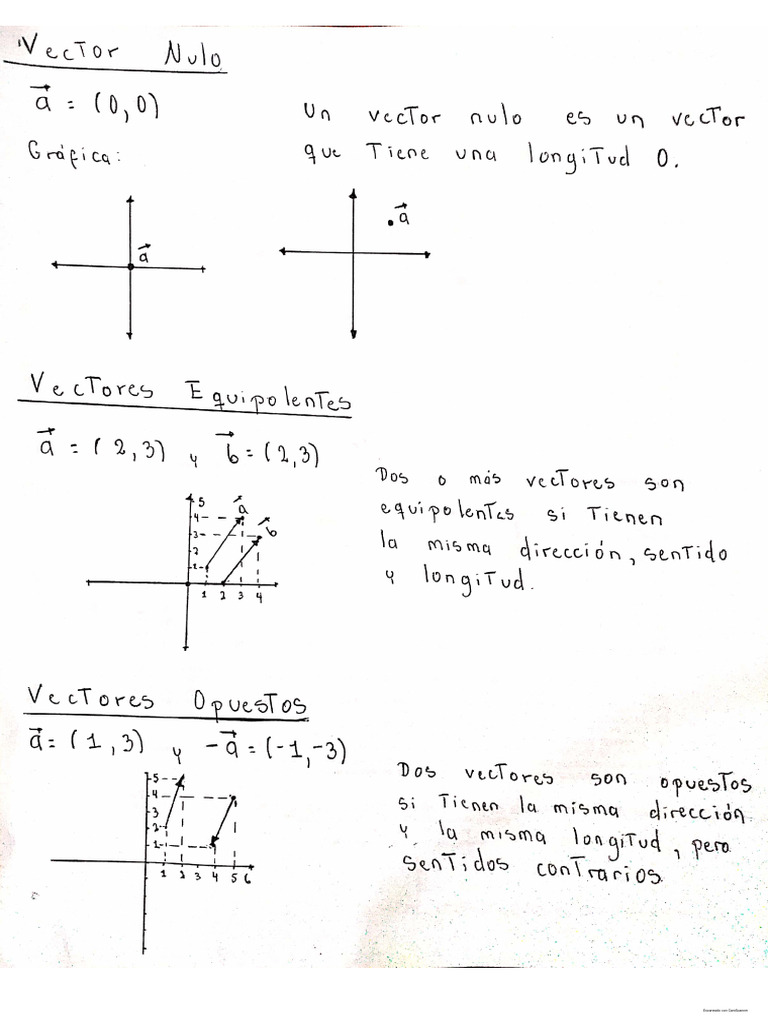 Vector Nulo
a⃗ = (0,0)
Gráfica:
Un vector nulo es un vector
que tiene una longitud 0.
a⃗
a⃗
Vectores Equipolentes
a⃗ = (2,3) y b⃗ = (2,3)
5
4
3
2
1
1 2 3 4
a⃗
b⃗
Dos o más vectores son
equipolentes si tienen
la misma dirección, sentido
y longitud.
Vectores Opuestos
a⃗ = (1,3) y -a⃗ = (-1,-3)
5
4
3
2
1
1 2 3 4 5 6
Dos vectores son opuestos
si tienen la misma dirección
y la misma longitud, pero
sentidos contrarios
Escaneado con CamScanner